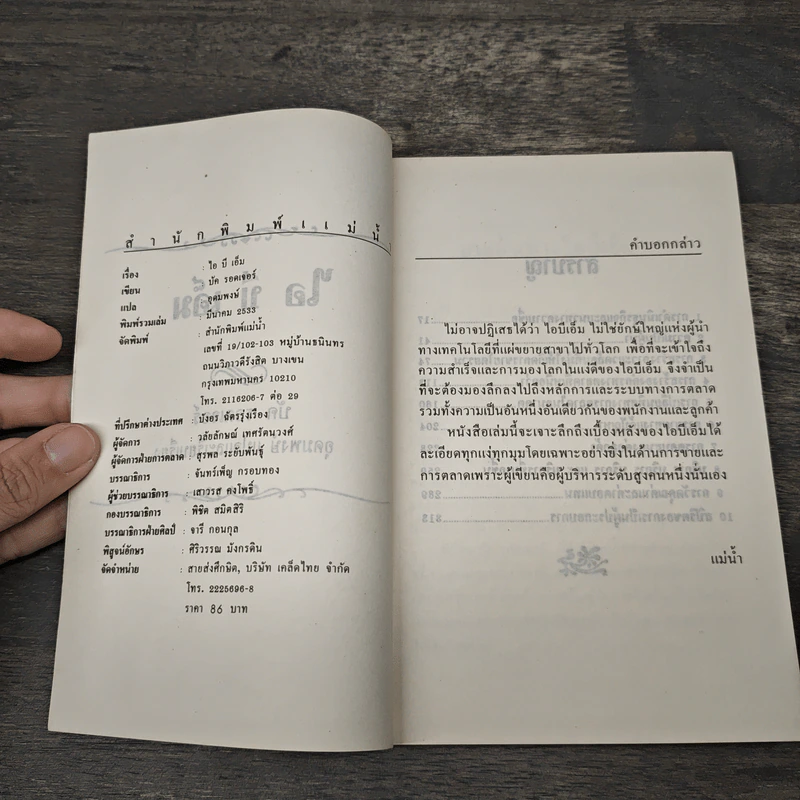 สำนักพิมพ์แม่น้ำ
เรื่อง : ไอ บี เอ็ม
เขียน : บัค รอดเจอร์
แปล : อุดมพงษ์
พิมพ์รวมเล่ม : มีนาคม 2533
จัดพิมพ์ : สำนักพิมพ์แม่น้ำ
เลขที่ 19/102-103 หมู่บ้านธนินทร
ถนนวิภาวดีรังสิต บางเขน
กรุงเทพมหานคร 10210
โทร. 2116206-7 ต่อ 29
ที่ปรึกษาต่างประเทศ : บังอร ฉัตรรุ่งเรือง
ผู้จัดการ : วลัยลักษณ์ เทศรัตนวงศ์
ผู้จัดการฝ่ายการตลาด : สุรพล ระยับพันธุ์
บรรณาธิการ : จันทร์เพ็ญ กรอบทอง
ผู้ช่วยบรรณาธิการ : เสาวรส คงโพธิ์
กองบรรณาธิการ : พิชิต สมิตสิริ
บรรณาธิการฝ่ายศิลป์ : จารี กอนกุล
พิสูจน์อักษร : ศิริวรรณ มังกรดิน
จัดจำหน่าย : สายส่งศึกษิต, บริษัท เคล็ดไทย จำกัด
โทร. 2225696-8
ราคา 86 บาท
คำบอกกล่าว
ไม่อาจปฏิเสธได้ว่า ไอบีเอ็ม ไม่ใช่ยักษ์ใหญ่แห่งผู้นำ
ทางเทคโนโลยีที่แผ่ขยายสาขาไปทั่วโลก เพื่อที่จะเข้าใจถึง
ความสำเร็จและการมองโลกในแง่ดีของไอบีเอ็ม จึงจำเป็น
ที่จะต้องมองลึกลงไปถึงหลักการและระบบทางการตลาด
รวมทั้งความเป็นอันหนึ่งอันเดียวกันของพนักงานและลูกค้า
หนังสือเล่มนี้จะเจาะลึกถึงเบื้องหลังของไอบีเอ็มได้
ละเอียดทุกแง่ทุกมุมโดยเฉพาะอย่างยิ่งในด้านการขายและ
การตลาดเพราะผู้เขียนคือผู้บริหารระดับสูงคนหนึ่งนั่นเอง
แม่น้ำ